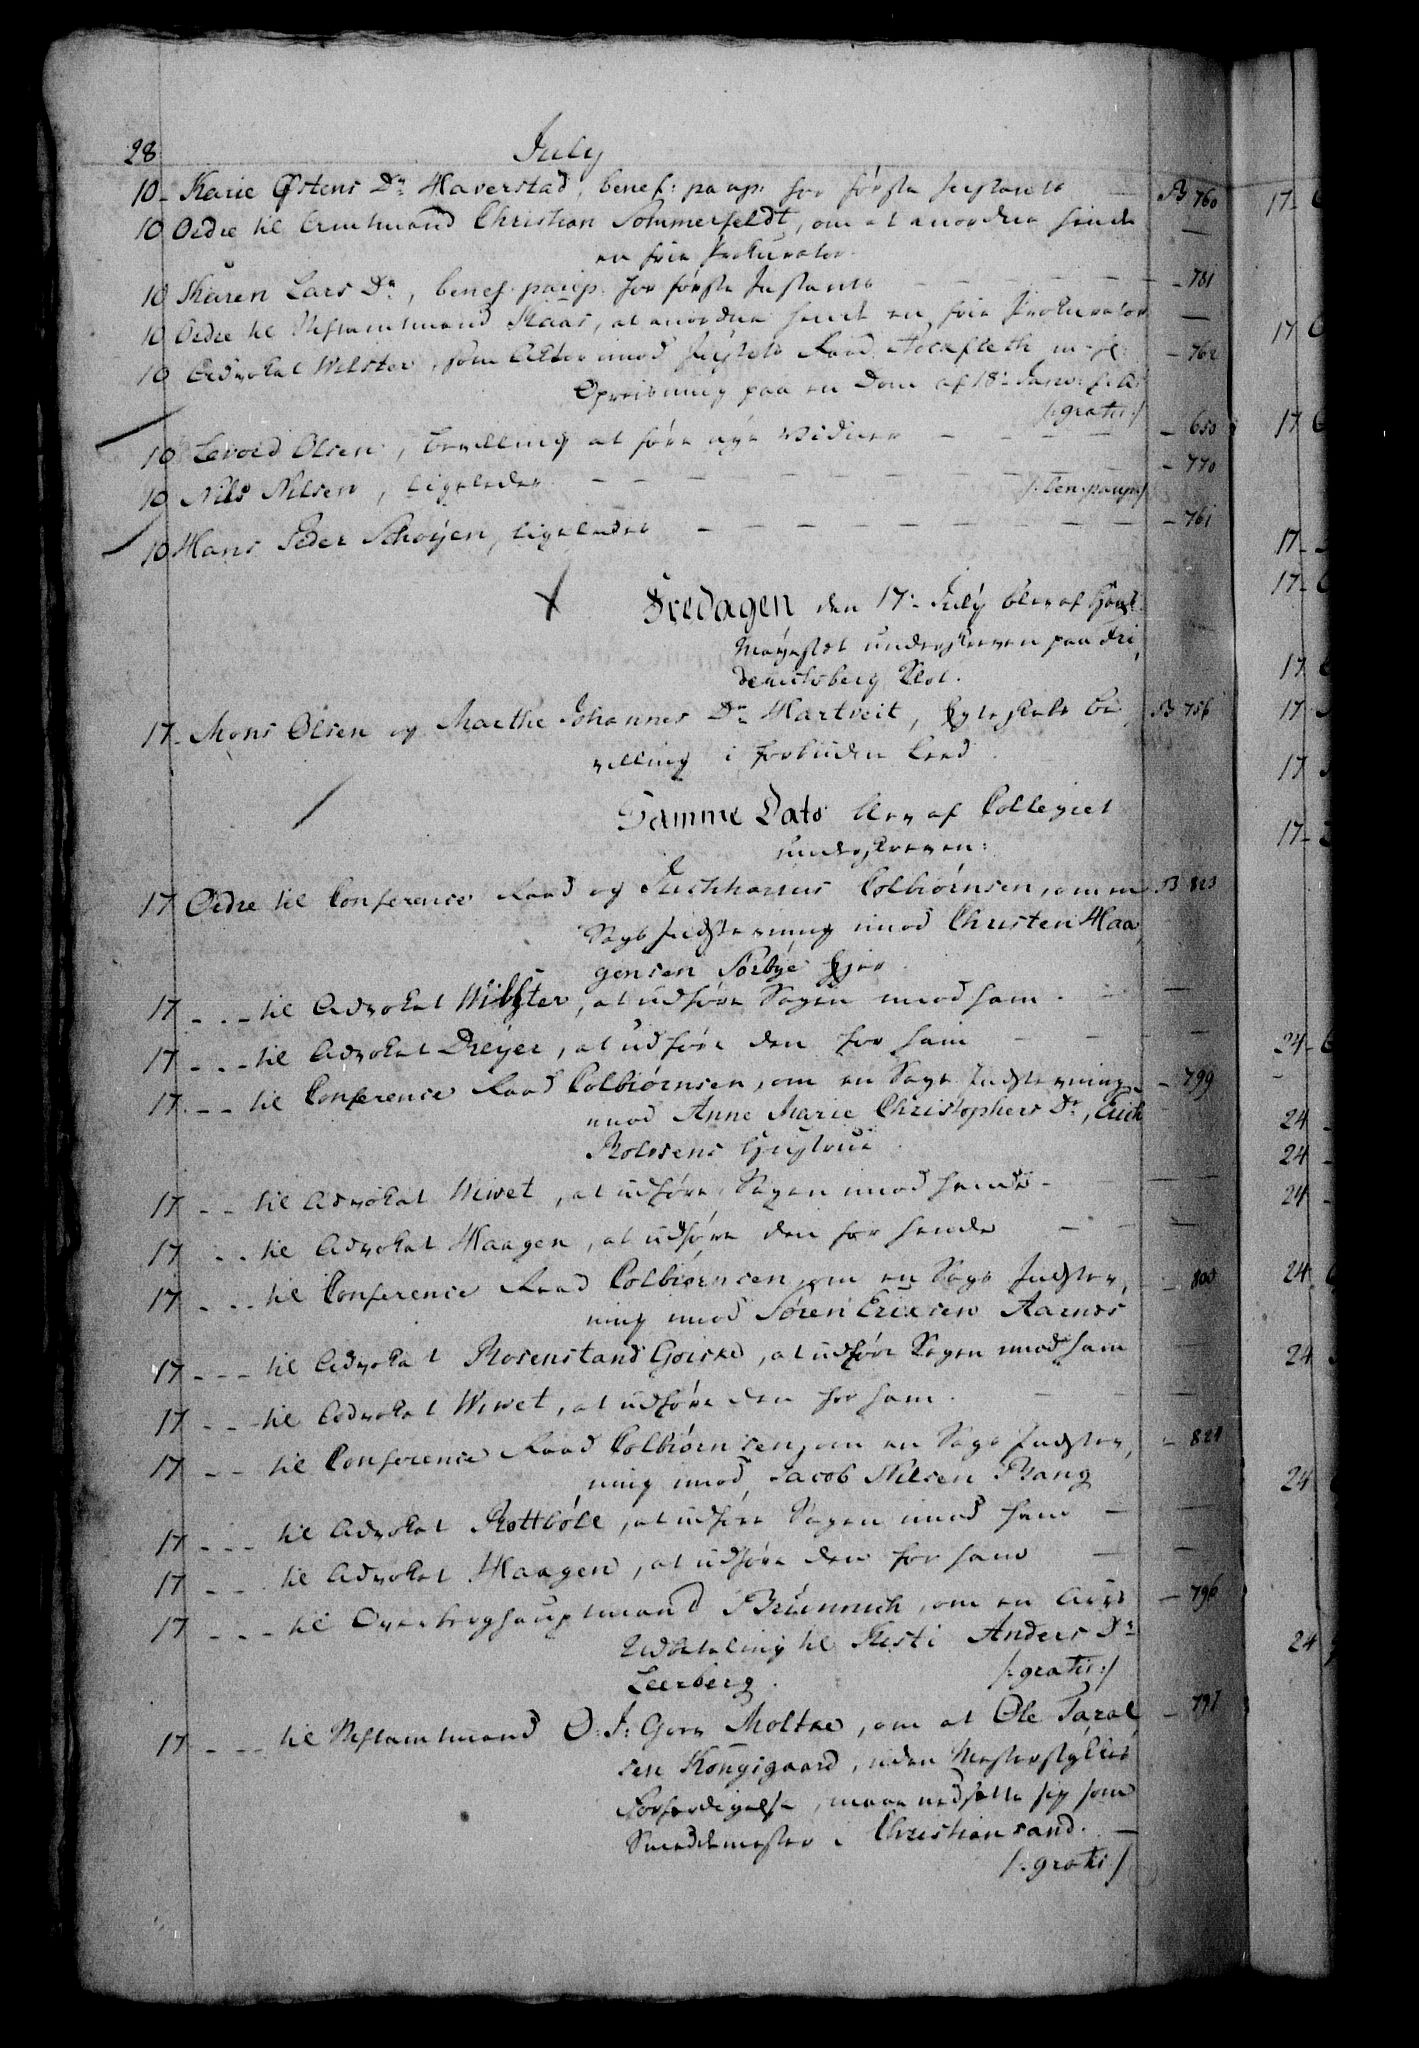 28
July
10 - Karie Østens Dr Haverstad, benef: paup: for første Instants - B 760
10 Ordre til Amtmand Christian Sommerfeldt, om at anordne hende -
en frie Prokurator.
10 Karen Lars Dr, benef. paup. for første Instants - - - - - 781
10 Ordre til Stiftamtmand Kaas, at anordne hende en frie Prokurator -
10 Advokat Wilster, som Actor imod Justits Raad - 762
Opreisning paa en Dom af 18de Janv: f: A:
/: gratis :/
10 Levord Olsen, Bevilling at føre nye Vidner - - - - - 650
10 Nils Nilsen, ligeledes - - - - - - - - 770
/: ben: paup: /
10 Hans Peder Schøyen, ligeledes - - - - - - - - - - 761
Fredagen den 17de July blev af Hans
Mayestæt underskreven paa Fri,
derichsberg Slot.
17 - Mons Olsen og Marthe Johannes Dr Hartveit, Egteskabs Be, B 756
villing i forbuden Leed.
Samme Dato blev af Collegiet
underskreven:
17 Ordre til Conference Raad og Justitiarius Colbiørnsen, om en B 823
Sags Indstevning imod Christen Haa,
gensen Sørbye
17 - . - til Advokat Wilster, at udføre Sagen imod ham. - -
17 - . - til Advokat Dreyer, at udføre den for ham - - - -
17 . - - til Conference Raad Colbiørnsen, om en Sags Indstevning - 799
imod Anne Marie Christophers Dr, Erich
Rolvsens Hustrue.
17 - - til Advokat Wivet, at udføre Sagen imod hende - - -
17 - - til Advokat Haagen, at udføre den for hende - - -
17 - - - til Conference Raad Colbiørnsen, om en Sags Indstev, - 800
ning imod Søren Erixsen Aarnes
17 - - - til Advokat Rosenstand Goiske, at udføre Sagen imod ham -
17 - - - til Advokat Wivet, at udføre den for ham. - - -
17 - - til Conference Raad Colbiørnsen, om en Sags Indstev, - 821
ning imod Jacob Nilsen Bang
17 - - - til Advokat Rottbøll, at udføre Sagen imod ham - -
17 - - - til Advokat Haagen, at udføre den for ham - -
17 - - - til Overberghauptmand Brünnich, om en - 796
Udbetaling til Kisti Anders Dr
Leerberg. /: gratis :/
17 - - - til Stiftamtmand O: J: Grev Moltke, om at Ole Taral, - 797
sen Kongsgaard, uden Mesterstykkes
Forferdigelse, maae nedsætte sig som
Smeddemester i Christiansand. -
/: gratis /
17 -
17
17
17 -
17 -
17
17
17
17 -
24 -
24 -
24 -
24 -
24
24
24
24